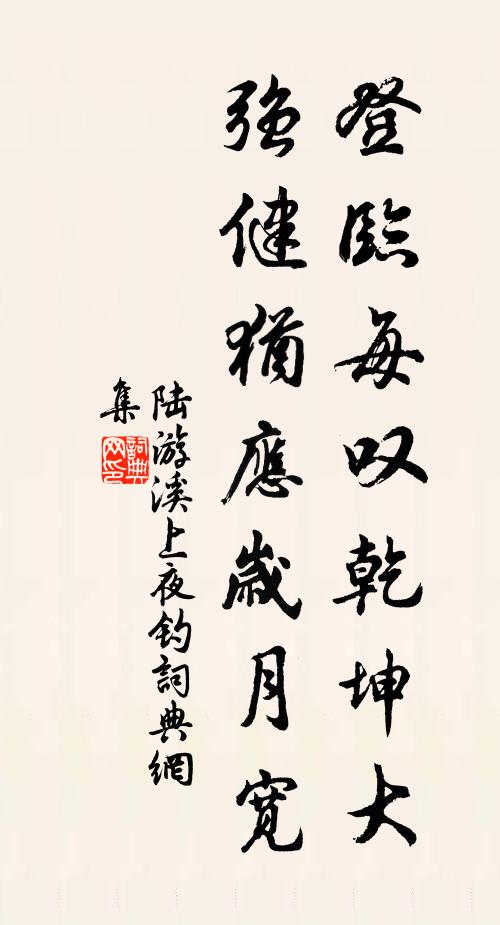 登臨每叹乾坤大
強健猶應歲月寬
陆游溪上夜釣詞典網
集
詞典网印